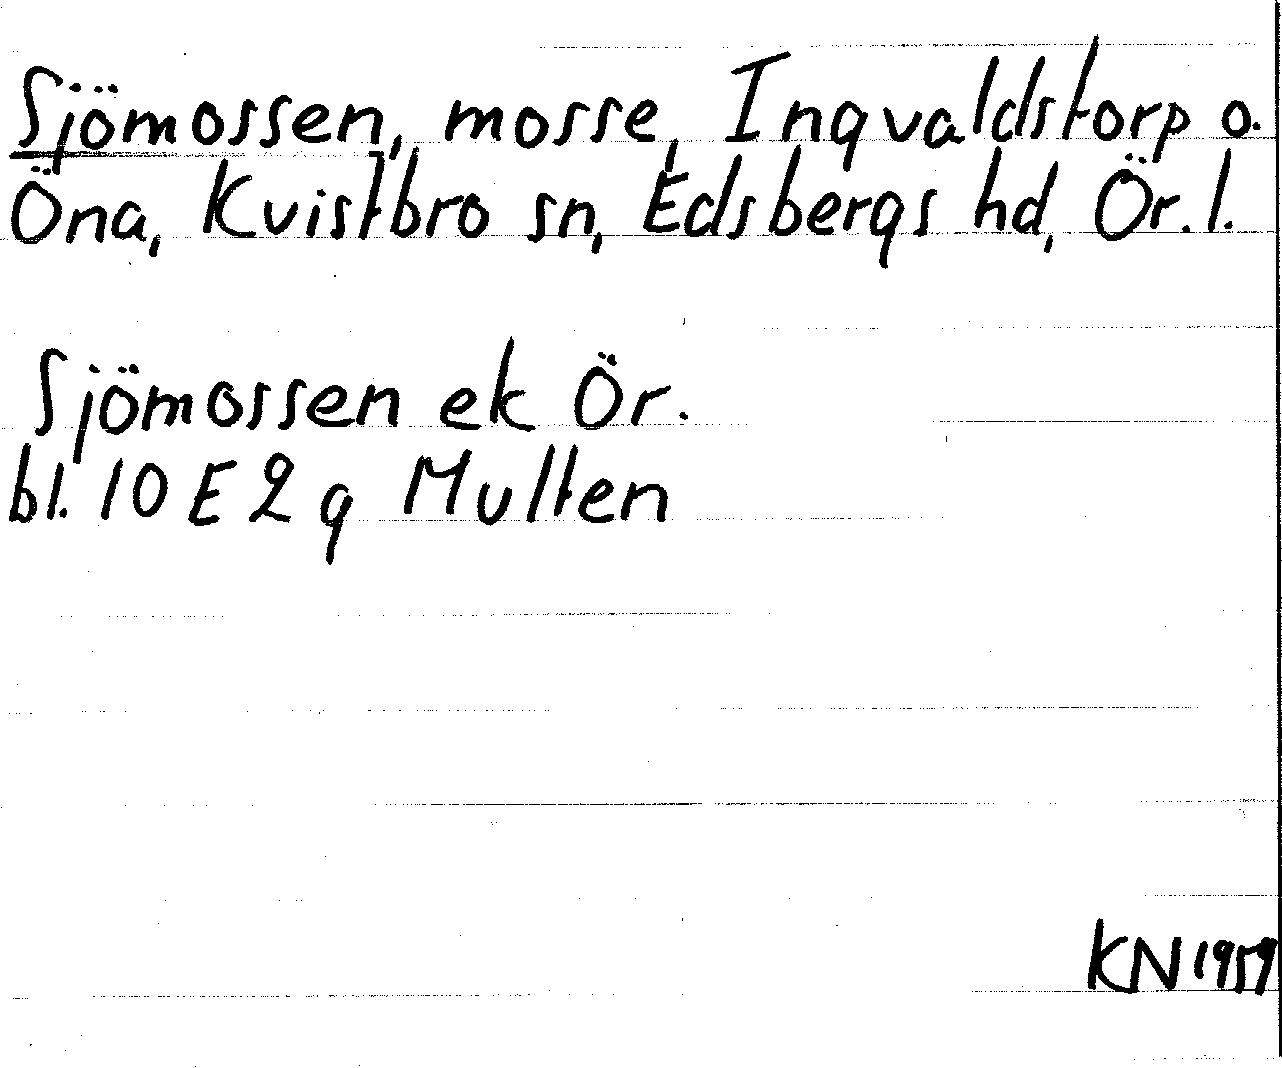 Sjömossen, mosse, Ingvaldstorp o.
Öna, Kvistbro sn, Edsbergs hd, Ör. l.
Sjömossen ek Ör.
bl. 10 E 2 g Multen
KN 1959